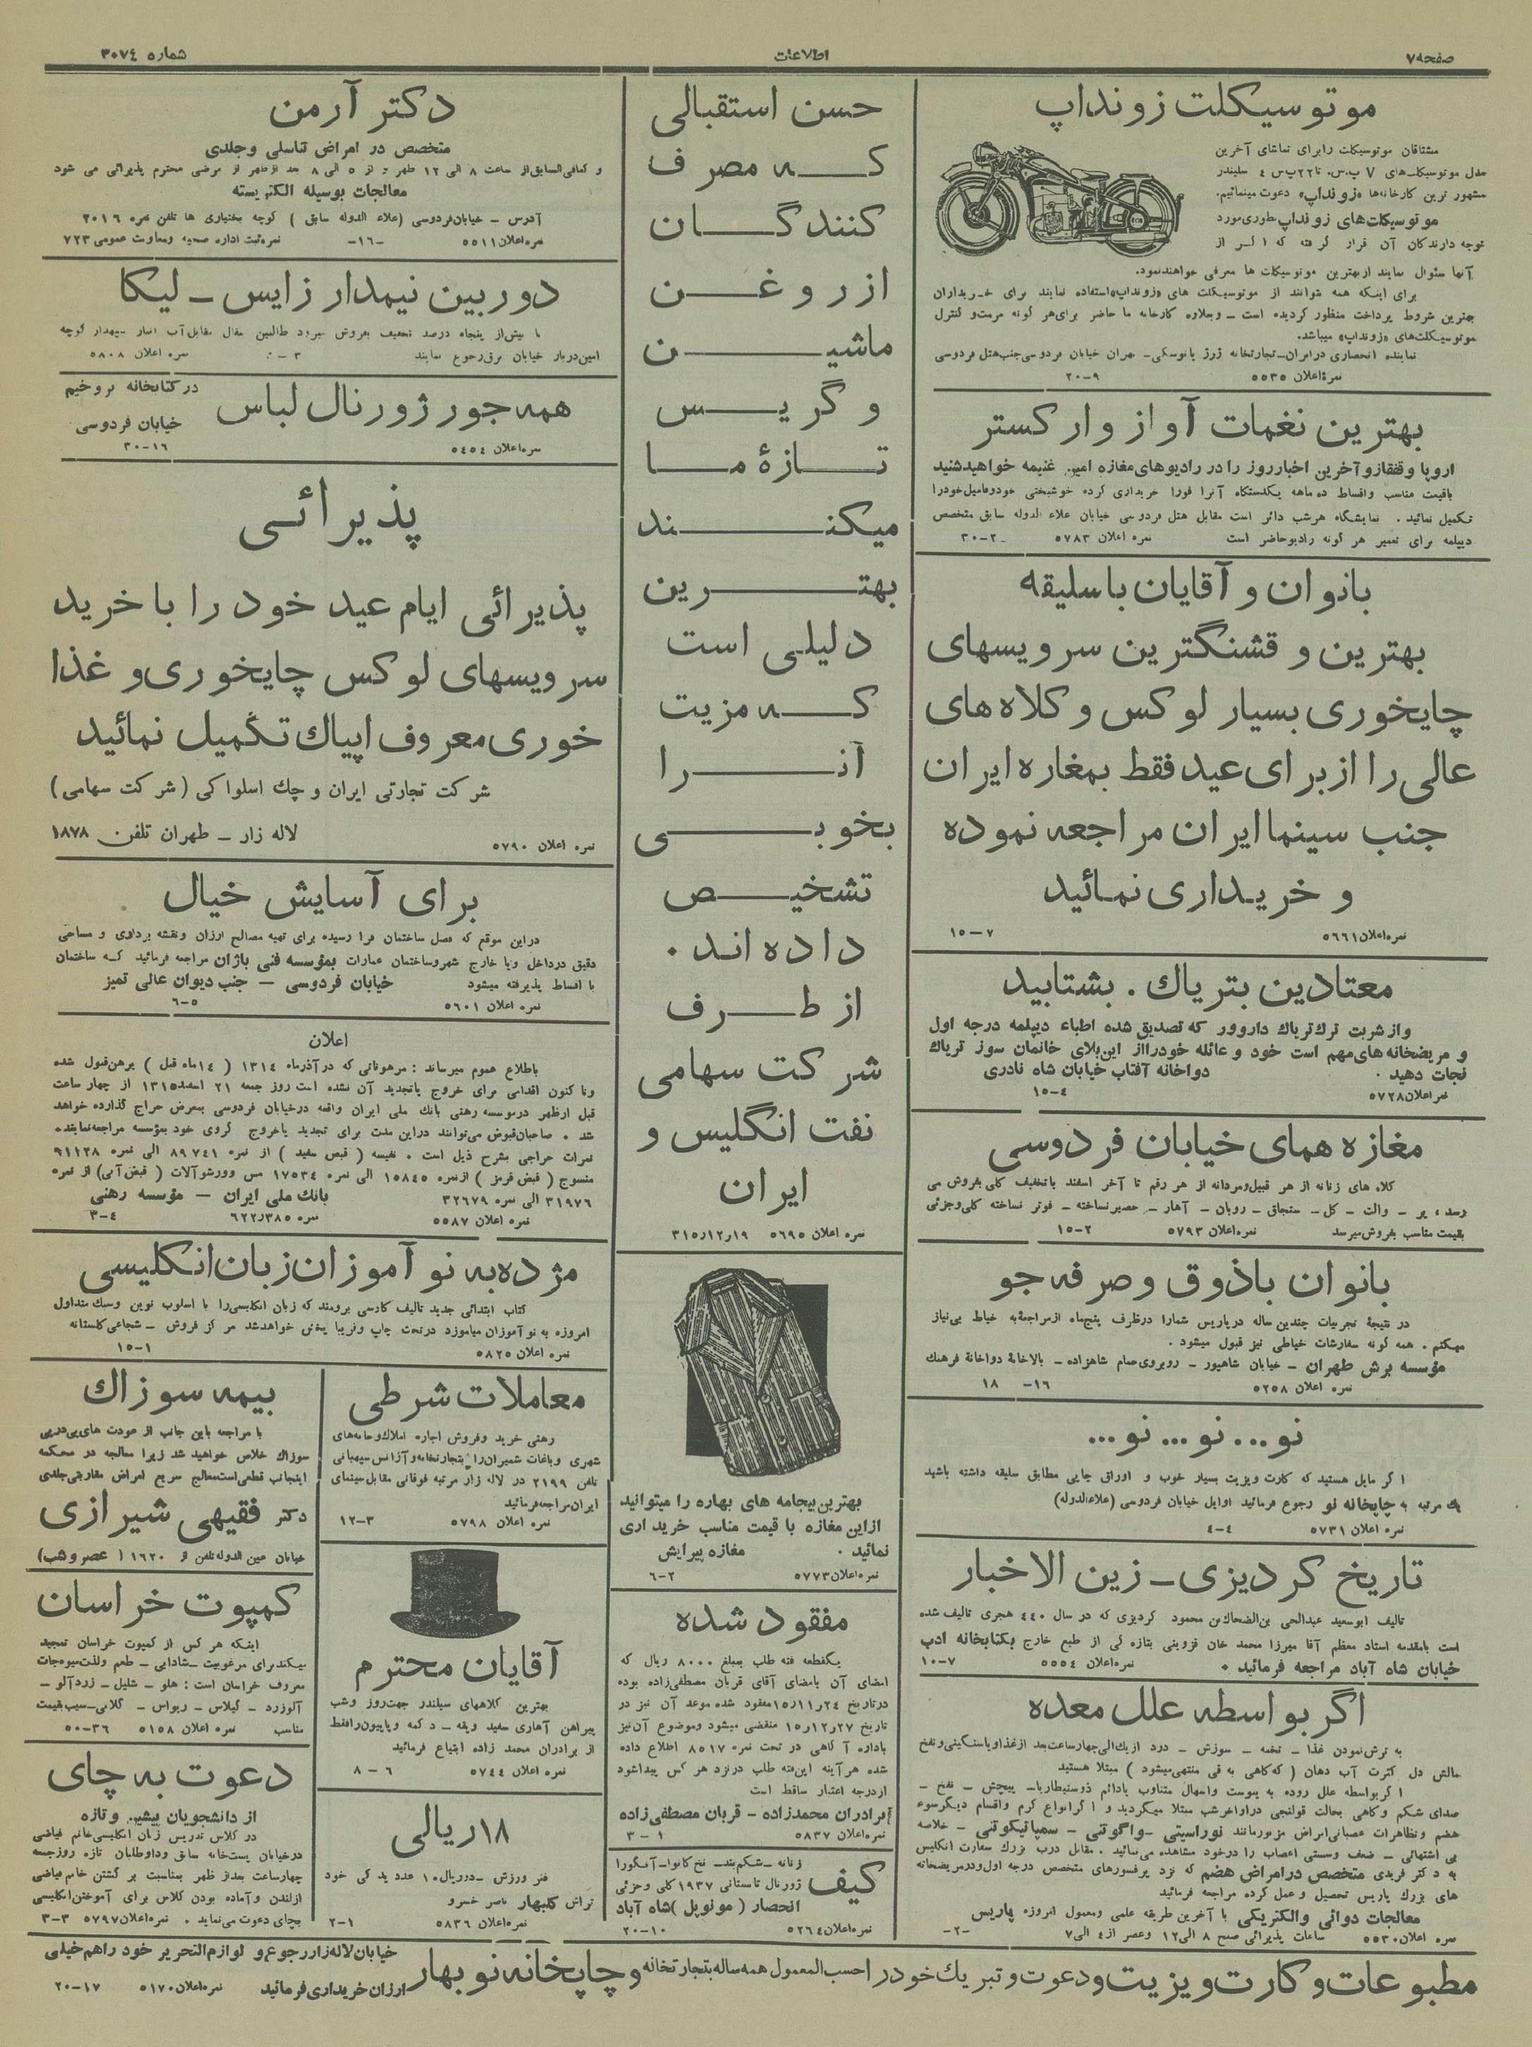 صفحه۷
اطلاعات
شماره ۳۰۷٤
موتوسیکلت زونداپ
مشتاقان موتوسیکلت را برای تماشای آخرین
مدل موتوسیکلت‌های ۷ پ.س. تا ۲۲ پ س ٤ سلیندر
مشهور ترین کارخانه‌ها «زونداپ» دعوت مینمائیم.
موتوسیکلت‌های زونداپ بطوری مورد
توجه دارندکان آن قرار گرفته که اگر از
آنها سئوال نمایند از بهترین موتوسیکلت ها معرفی خواهند نمود.
برای اینکه همه بتوانند از موتوسیکلت های «زونداپ» استفاده نمایند برای خریداران
بهترین شروط پرداخت منظور کردیده است – وبعلاوه کارخانه ما حاضر برای هر گونه مرمت و کنترل
موتوسیکلت‌های «زونداپ» میباشد.
نماینده انحصاری در ایران – تجارتخانه ژرژ یانوسکی – تهران خیابان فردوسی جنب هتل فردوسی
نمرهٔ اعلان ۵۵۳۵ ۹–۲۰
بهترین نغمات آواز وار کستر
اروپا وقفقاز و آخرین اخبار روز را در رادیوهای مغازه امیر غنیمه خواهید شنید
باقیمت مناسب واقساط ده ماهه یکدستگاه آنرا فورا خریداری کرده خوشبختی خود و فامیل خود را
تکمیل نمائید . نمایشگاه هرشب دائر است مقابل هتل فردوسی خیابان علاء الدوله سابق متخصص
دیپلمه برای تعمیر هر گونه رادیو حاضر است نمره اعلان ۵۷۸۳ ۲–۳۰
بانوان و آقایان با سلیقه
بهترین و قشنگترین سرویسهای
چایخوری بسیار لوکس و کلاه های
عالی را از برای عید فقط بمغازه ایران
جنب سینما ایران مراجعه نموده
و خریداری نمائید
نمره اعلان ۵٦٦۱ ۷–۱۵
معتادین بتریاك . بشتابید
و از شربت ترك تریاك داروور که تصدیق شده اطباء دیپلمه درجه اول
و مریضخانه های مهم است خود و عائله خودرا از این بلای خانمان سوز تریاك
نجات دهید . دواخانه آفتاب خیابان شاه نادری
نمره اعلان ۵۷۲۸ ٤–۱۵
مغازه همای خیابان فردوسی
کلاه های زنانه از هر قبیل و مردانه از هر رقم تا آخر اسفند با تخفیف کلی بفروش می
رسد ، پر – والت – کل – سنجاق – روبان – آهار – حصیر نساخته – فوتر نساخته کلی و جزئی
بقیمت مناسب بفروش میرسد نمره اعلان ۵۷۹۳ ۲–۱۵
بانوان باذوق و صرفه جو
در نتیجهٔ تجربیات چندین ساله در پاریس شمارا در ظرف پنج‌ماه از مراجعهٔ به خیاط بی نیاز
میکنم . همه گونه سفارشات خیاطی نیز قبول میشود .
مؤسسه برش طهران – خیابان شاهپور – روبروی حمام شاهزاده – بالاخانهٔ دواخانهٔ فرهنك
نمره اعلان ۵۲۵۸ ۱٦– ۱۸
نو... نو... نو...
اگر مایل هستید که کارت ویزیت بسیار خوب و اوراق چاپی مطابق سلیقه داشته باشید
یك مرتبه به چاپخانه نو رجوع فرمائید اوایل خیابان فردوسی (علاءالدوله)
نمره اعلان ۵۷۳۱ ٤–٤
تاریخ کردیزی – زین الاخبار
تالیف ابوسعید عبدالحی بن الضحاك بن محمود کردیزی که در سال ٤٤۰ هجری تالیف شده
است بامقدمه استاد معظم آقا میرزا محمد خان قزوینی بتازه گی از طبع خارج بکتابخانه ادب
خیابان شاه آباد مراجعه فرمائید . نمره اعلان ۵۵۵٤ ۷–۱۰
اگر بواسطه علل معده
به ترش نمودن غذا – تخمه – سوزش – درد از یك الی چهار ساعت بعد از غذا و یا سنگینی و نفخ
مالش دل کثرت آب دهان ( که گاهی به قی منتهی میشود ) مبتلا هستید
اگر بواسطه علل روده به یبوست واسهال متناوب یا دائم ذوسنطاریا – پیچش – نفخ –
صدای شکم و کاهی بحالت قولنجی در اواخر شب مبتلا میکردید و اگر انواع کرم واقسام دیگر سوء
هضم و تظاهرات عصبانی امراض مزبور مانند نوراستی – واگوتنی – سمپاتیکوتنی – خلاصه
بی اشتهائی – ضعف وسستی اعصاب را در خود مشاهده می نمائید . مقابل درب بزرك سفارت انگلیس
به دکتر فریدی متخصص در امراض هضم که نزد پرفسورهای متخصص درجه اول و در مریضخانه
های بزرك پاریس تحصیل و عمل کرده مراجعه فرمائید
معالجات دوائی و الکتریکی با آخرین طریقه علمی و معمول امروزه پاریس
نمره اعلان ۵۵۳۰ ساعات پذیرائی صبح ۸ الی ۱۲ و عصر از ٤ الی ۷ –۲–
حسن استقبالی
که مصرف
کنندگان
از روغن
ماشین
و گریس
تازهٔ ما
میکنند
بهترین
دلیلی است
که مزیت
آنرا
بخوبی
تشخیص
داده اند .
از طرف
شرکت سهامی
نفت انگلیس و
ایران
نمره اعلان ۵٦۹۵ ۳۱۵/۱۲/۱۹
بهترین بیجامه های بهاره را میتوانید
از این مغازه با قیمت مناسب خریداری
نمائید . مغازه پیرایش
نمره اعلان ۵۷۷۳ ۲–٦
مفقود شده
یکقطعه فته طلب بمبلغ ۸۰۰۰ ریال که
امضای آن بامضای آقای قربان مصطفی زاده بوده
در تاریخ ۱۵/۱۱/۲٤ مفقود شده موعد آن نیز در
تاریخ ۱۵/۱۲/۲۷ منقضی میشود و موضوع آن نیز
باداره آگاهی در تحت نمره ۸۵۱۷ اطلاع داده
شده هر آینه این فته طلب در نزد هر کس پیدا شود
از درجه اعتبار ساقط است
برادران محمدزاده – قربان مصطفی زاده
نمره اعلان ۵۸۳۷ ۱–۳
کیف
زنانه – شکم بند – نخ کانوا – آنگورا
ژورنال تابستانی ۱۹۳۷ کلی و جزئی
انحصار ( مونوپل ) شاه آباد
نمره اعلان ۵۲٦٤ ۱۰–۲۰
دکتر آرمن
متخصص در امراض تناسلی و جلدی
و کمافی السابق از ساعت ۸ الی ۱۲ ظهر و از ۵ الی ۸ بعد از ظهر از مرضی محترم پذیرائی می شود
معالجات بوسیله الکتریسته
آدرس – خیابان فردوسی (علاء الدوله سابق ) کوچه بختیاری ها تلفن نمره ۲۰۱٦
نمره اعلان ۵۵۱۱ –۱٦– نمره ثبت اداره صحیه و معاونت عمومی ۷۲۳
دوربین نیمدار زایس – لیکا
با بیش از پنجاه درصد تخفیف بفروش میرود طالبین مقابل آب انبار سپهدار کوچه
امین دربار خیابان برق رجوع نمایند ۳– نمره اعلان ۵۸۰۸
همه جور ژورنال لباس
در کتابخانه بروخیم
خیابان فردوسی
نمره اعلان ۵٤۵٤ ۱٦–۳۰
پذیرائی
پذیرائی ایام عید خود را با خرید
سرویسهای لوکس چایخوری و غذا
خوری معروف اپیاك تکمیل نمائید
شرکت تجارتی ایران و چك اسلواکی (شرکت سهامی)
لاله زار – طهران تلفن ۱۸۷۸
نمره اعلان ۵۷۹۰
برای آسایش خیال
در این موقع که فصل ساختمان فرا رسیده برای تهیه مصالح ارزان و نقشه برداری و مساحی
دقیق در داخل و یا خارج شهر و ساختمان عمارات بمؤسسه فنی باژان مراجعه فرمائید که ساختمان
با اقساط پذیرفته میشود خیابان فردوسی – جنب دیوان عالی تمیز
نمره اعلان ۵٦۰۱ ۵–٦
اعلان
باطلاع عموم میرساند : مرهوناتی که در آذرماه ۱۳۱٤ ( ۱٤ ماه قبل ) برهن قبول شده
و تا کنون اقدامی برای خروج یا تجدید آن نشده است روز جمعه ۲۱ اسفند ۱۳۱۵ از چهار ساعت
قبل از ظهر در موسسه رهنی بانك ملی ایران واقعه در خیابان فردوسی بمعرض حراج گذارده خواهد
شد . صاحبان قبوض می توانند در این مدت برای تجدید یا خروج گروی خود بمؤسسه مراجعه نمایند.
نمرات حراجی بشرح ذیل است . نفیسه ( قبض سفید ) از نمره ۸۹۷٤۱ الی نمره ۹۱۱۲۸
منسوج ( قبض قرمز ) از نمره ۱۵۸٤۵ الی نمره ۱۷۵۳٤ مس و ورشو آلات ( قبض آبی) از نمره
۳۱۹۷٦ الی نمره ۳۲٦۷۹ بانك ملی ایران – مؤسسه رهنی
نمره اعلان ۵۵۸۷ نمره ٦۲۲/۳۸۵ ٤–۳
مژده به نو آموزان زبان انگلیسی
کتاب ابتدائی جدید تالیف کارسی برومند که زبان انکلیسی را با اسلوب نوین و سبك متداول
امروزه به نو آموزان میاموزد در تحت چاپ و قریبا پخش خواهد شد مرکز فروش – شجاعی گلستانه
نمره اعلان ۵۸۲۵ ۱–۱۵
معاملات شرطی
رهنی خرید و فروش اجاره املاك و خانه های
شهری و باغات شمیران را بتجارتخانه و آژانس سیهبانی
تلفن ۲۱۹۹ در لاله زار مرتبه فوقانی مقابل سینمای
ایران مراجعه فرمائید
نمره اعلان ۵۷۹۸ ۳–۱۲
آقایان محترم
بهترین کلاههای سیلندر جهت روز و شب
پیراهن آهاری سفید و یقه – دکمه و پاپیون را فقط
از برادران محمد زاده ابتیاع فرمائید
نمره اعلان ۵۷٤٤ ٦ – ۸
۱۸ ریالی
فنر ورزش – دو ریال ۱۰ عدد یدگی خود
تراش گلبهار ناصر خسرو
نمره اعلان ۵۸۳٦ ۱–۲
بیمه سوزاك
با مراجعه باین جانب از عودت های پی در پی
سوزاك خلاص خواهید شد زیرا معالجه در محکمه
اینجانب قطعی است معالج سریع امراض مقاربتی جلدی
دکتر فقیهی شیرازی
خیابان عین الدوله تلفن از ۱٦۲۰ ( عصر و شب)
کمپوت خراسان
اینکه هر کس از کمپوت خراسان تمجید
میکند برای مرغوبیت – شادابی – طعم و لذت میوه جات
معروف خراسان است : هلو – شلیل – زردآلو –
آلوزرد – گیلاس – ریواس – گلابی – سیب قیمت
مناسب نمره اعلان ۵۱۵۸ ۳٦–۵۰
دعوت به چای
از دانشجویان پیشین و تازه
در کلاس تدریس زبان انکلیسی خانم فیاضی
در خیابان پست خانه سابق و داوطلبان تازه روز جمعه
چهار ساعت بعد از ظهر بمناسبت بر گشتن خانم فیاضی
از لندن و آماده بودن کلاس برای آموختن انکلیسی
بچای دعوت می نماید . نمره اعلان ۵۷۹۷ ۳–۳
مطبوعات و کارت ویزیت و دعوت و تبریك خود را حسب المعمول همه ساله بتجارتخانه و چاپخانه نو بهار
خیابان لاله زار رجوع و لوازم التحریر خود را هم خیلی
ارزان خریداری فرمائید نمره اعلان ۵۱۷۰ ۱۷–۲۰